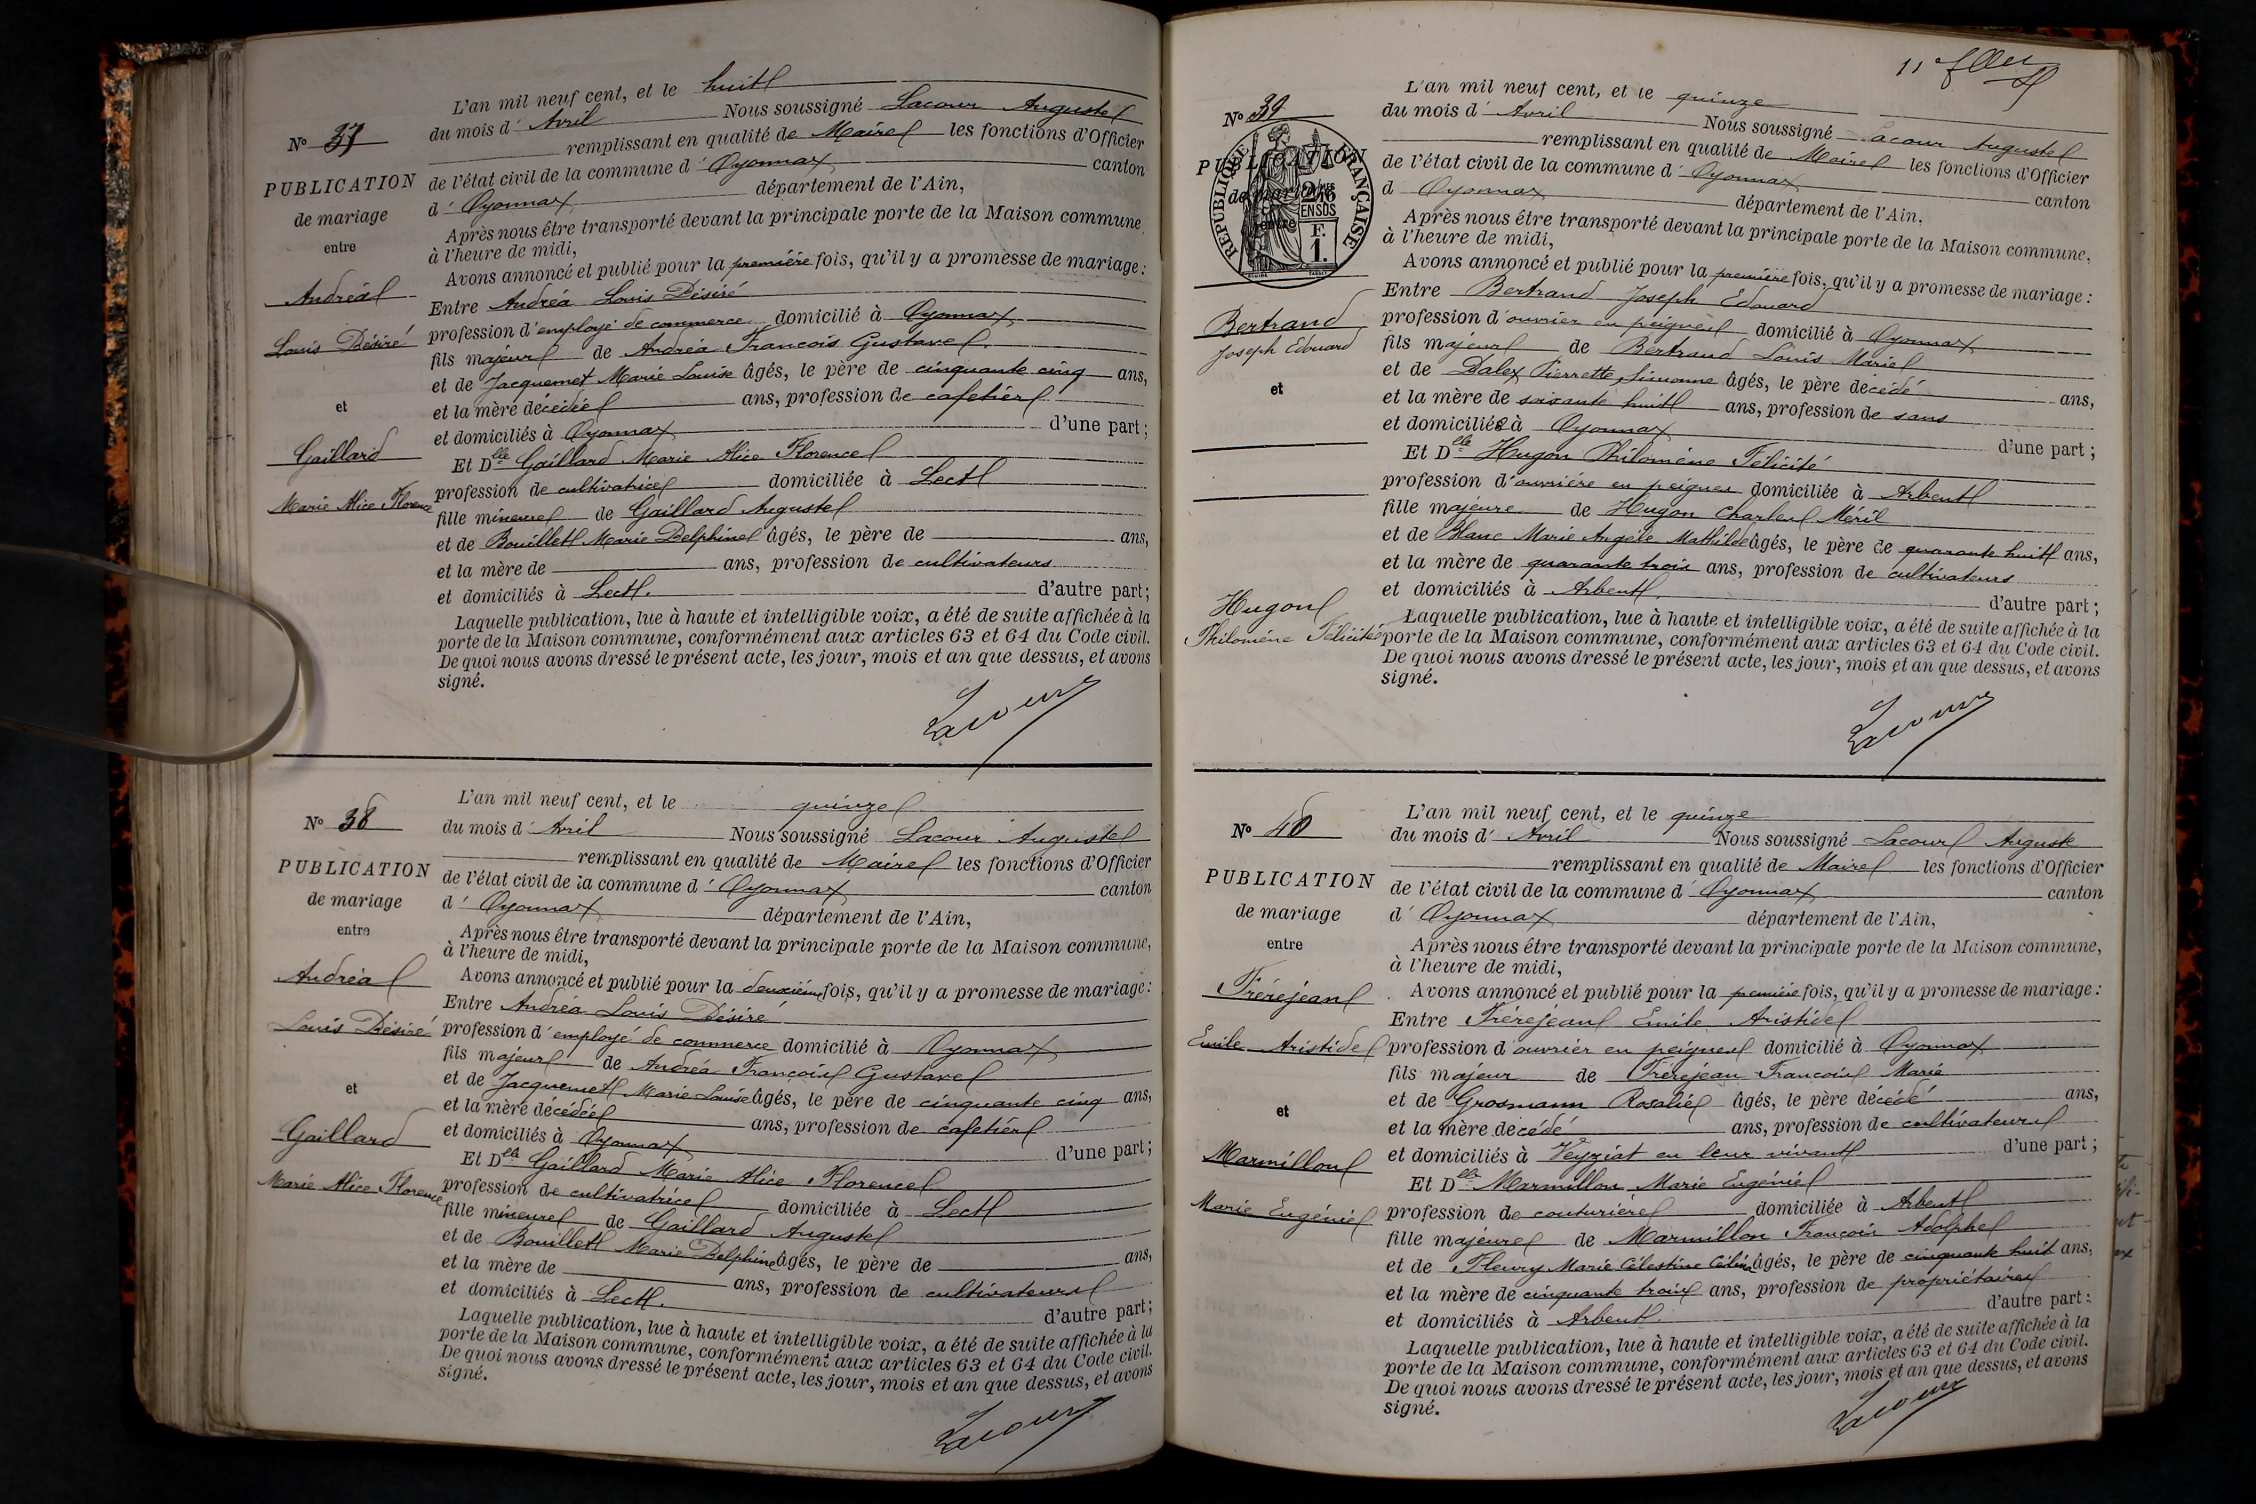 L'an mil neuf cent, et le huit
No 37
du mois d' Avril Nous soussigné Lacour Auguste
remplissant en qualité de Maire les fonctions d'Officier
PUBLICATION
de mariage
entre
de l'état civil de la commune d' Oyonnax canton
d' Oyonnax département de l'Ain,
Après nous être transporté devant la principale porte de la Maison commune,
à l'heure de midi,
Avons annoncé et publié pour la première fois, qu'il y a promesse de mariage :
Andréa
Louis Désiré
et
Gaillard
Marie Alice Florence
Entre Andréa Louis Désiré
profession d'employé de commerce domicilié à Oyonnax
fils majeur de Andréa Francois Gustave
et de Jacquemet Marie Louise âgés, le père de cinquante cinq ans,
et la mère décédée ans, profession de cafetier
et domiciliés à Oyonnax d'une part ;
Et Dlle Gaillard Marie Alice Florence
profession de cultivatrice domiciliée à Lect
fille mineure de Gaillard Auguste
et de Bouillet Marie Delphine âgés, le père de ans,
et la mère de ans, profession de cultivateurs
et domiciliés à Lect. d'autre part ;
Laquelle publication, lue à haute et intelligible voix, a été de suite affichée à la
porte de la Maison commune, conformément aux articles 63 et 64 du Code civil.
De quoi nous avons dressé le présent acte, les jour, mois et an que dessus, et avons
signé.
Lacour
L'an mil neuf cent, et le quinze
No 38
du mois d' Avril Nous soussigné Lacour Auguste
remplissant en qualité de Maire les fonctions d'Officier
PUBLICATION
de mariage
entre
de l'état civil de la commune d' Oyonnax canton
d' Oyonnax département de l'Ain,
Après nous être transporté devant la principale porte de la Maison commune,
à l'heure de midi,
Avons annoncé et publié pour la deuxième fois, qu'il y a promesse de mariage :
Andréa
Louis Désiré
et
Gaillard
Marie Alice Florence
Entre Andréa Louis Désiré
profession d'employé de commerce domicilié à Oyonnax
fils majeur de Andréa François Gustave
et de Jacquemet Marie Louise âgés, le père de cinquante cinq ans,
et la mère décédée ans, profession de cafetier
et domiciliés à Oyonnax d'une part ;
Et Dlle Gaillard Marie Alice Florence
profession de cultivatrice domiciliée à Lect
fille mineure de Gaillard Auguste
et de Bouillet Marie Delphine âgés, le père de ans,
et la mère de ans, profession de cultivateurs
et domiciliés à Lect. d'autre part ;
Laquelle publication, lue à haute et intelligible voix, a été de suite affichée à la
porte de la Maison commune, conformément aux articles 63 et 64 du Code civil.
De quoi nous avons dressé le présent acte, les jour, mois et an que dessus, et avons
signé.
Lacour
L'an mil neuf cent, et le quinze
No 39
du mois d' Avril Nous soussigné Lacour Auguste
remplissant en qualité de Maire les fonctions d'Officier
PUBLICATION
de mariage
entre
RÉPUBLIQUE FRANÇAISE
F. 1.
de l'état civil de la commune d' Oyonnax canton
d Oyonnax département de l'Ain,
Après nous être transporté devant la principale porte de la Maison commune,
à l'heure de midi,
Avons annoncé et publié pour la première fois, qu'il y a promesse de mariage :
Bertrand
Joseph Edouard
et
Hugon
Philomène Félicité
Entre Bertrand Joseph Edouard
profession d'ouvrier en peignes domicilié à Oyonnax
fils majeur de Bertrand Louis Marie
et de Dalex Pierrette Simonne âgés, le père décédé ans,
et la mère de soixante huit ans, profession de sans
et domiciliée à Oyonnax d'une part ;
Et Dlle Hugon Philomène Félicité
profession d'ouvrière en peignes domiciliée à Arbent
fille majeure de Hugon Charles Méril
et de Blanc Marie Angèle Mathilde âgés, le père de quarante huit ans,
et la mère de quarante trois ans, profession de cultivateurs
et domiciliés à Arbent. d'autre part ;
Laquelle publication, lue à haute et intelligible voix, a été de suite affichée à la
porte de la Maison commune, conformément aux articles 63 et 64 du Code civil.
De quoi nous avons dressé le présent acte, les jour, mois et an que dessus, et avons
signé.
Lacour
L'an mil neuf cent, et le quinze
No 40
du mois d' Avril Nous soussigné Lacour Auguste
remplissant en qualité de Maire les fonctions d'Officier
PUBLICATION
de mariage
entre
de l'état civil de la commune d' Oyonnax canton
d' Oyonnax département de l'Ain,
Après nous être transporté devant la principale porte de la Maison commune,
à l'heure de midi,
Avons annoncé et publié pour la première fois, qu'il y a promesse de mariage :
Frérejean
Emile Aristide
et
Marmillon
Marie Eugénie
Entre Frérejean Emile Aristide
profession d'ouvrier en peignes domicilié à Oyonnax
fils majeur de Frérejean François Marie
et de Grosmann Rosalie âgés, le père décédé ans,
et la mère décédé ans, profession de cultivateurs
et domiciliés à Veyziat en leur vivant d'une part ;
Et Dlle Marmillon Marie Eugénie
profession de couturière domiciliée à Arbent
fille majeure de Marmillon François Adolphe
et de Fleury Marie Célestine Célina âgés, le père de cinquante huit ans,
et la mère de cinquante trois ans, profession de propriétaires
et domiciliés à Arbent. d'autre part ;
Laquelle publication, lue à haute et intelligible voix, a été de suite affichée à la
porte de la Maison commune, conformément aux articles 63 et 64 du Code civil.
De quoi nous avons dressé le présent acte, les jour, mois et an que dessus, et avons
signé.
Lacour